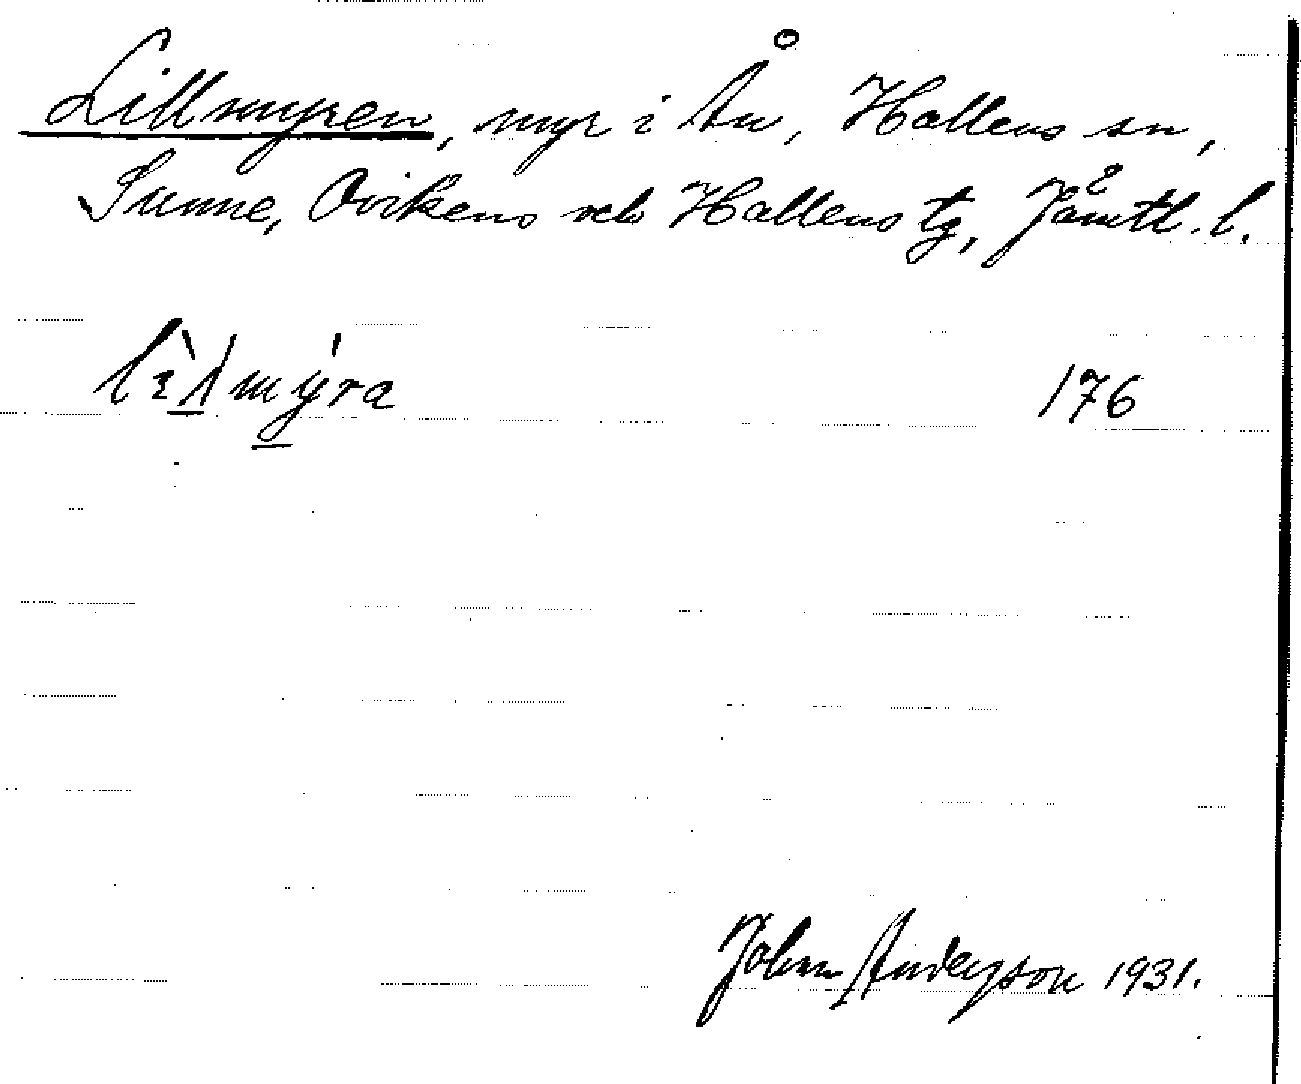 Lillmyren, myr i Ån, Hallens sn,
Sunne, Ovikens och Hallens tg, Jämtl. l.
lìlmýra 176
Johan Anderson 1931.